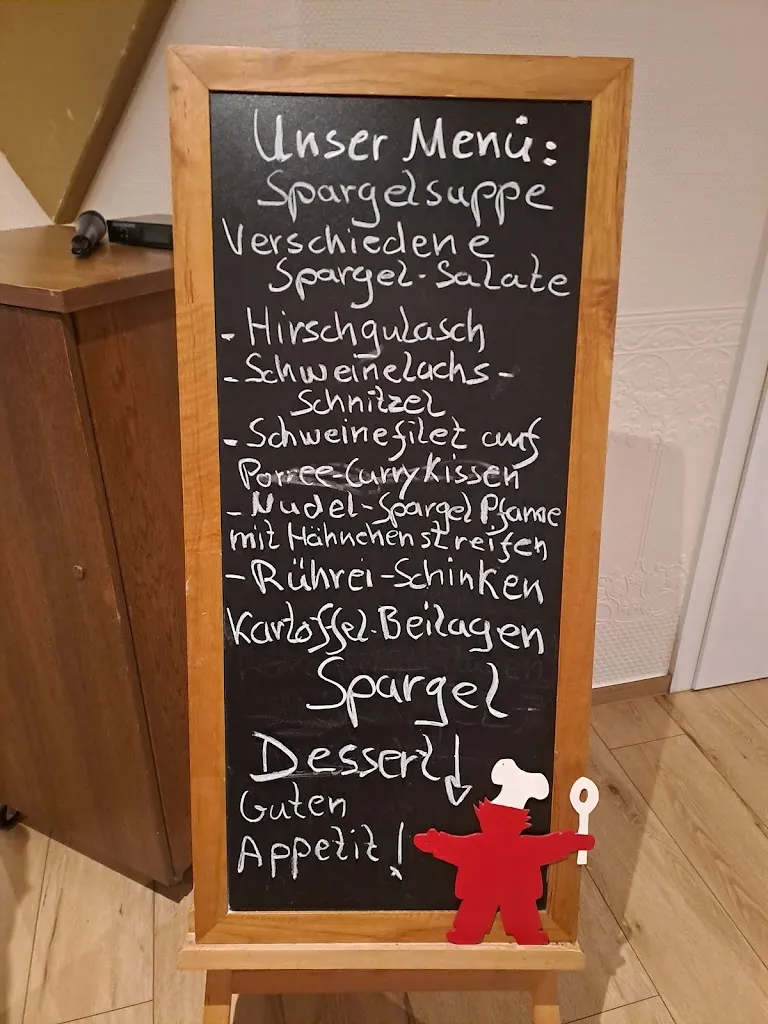 Unser Menü:
Spargelsuppe
Verschiedene
Spargel-Salate
- Hirschgulasch
- Schweinelachs-
Schnitzel
- Schweinefilet auf
Porree-Curry Kissen
- Nudel-Spargel Pfanne
mit Hähnchenstreifen
- Rührei-Schinken
Kartoffel-Beilagen
Spargel
Dessert!
Guten
Appetit!